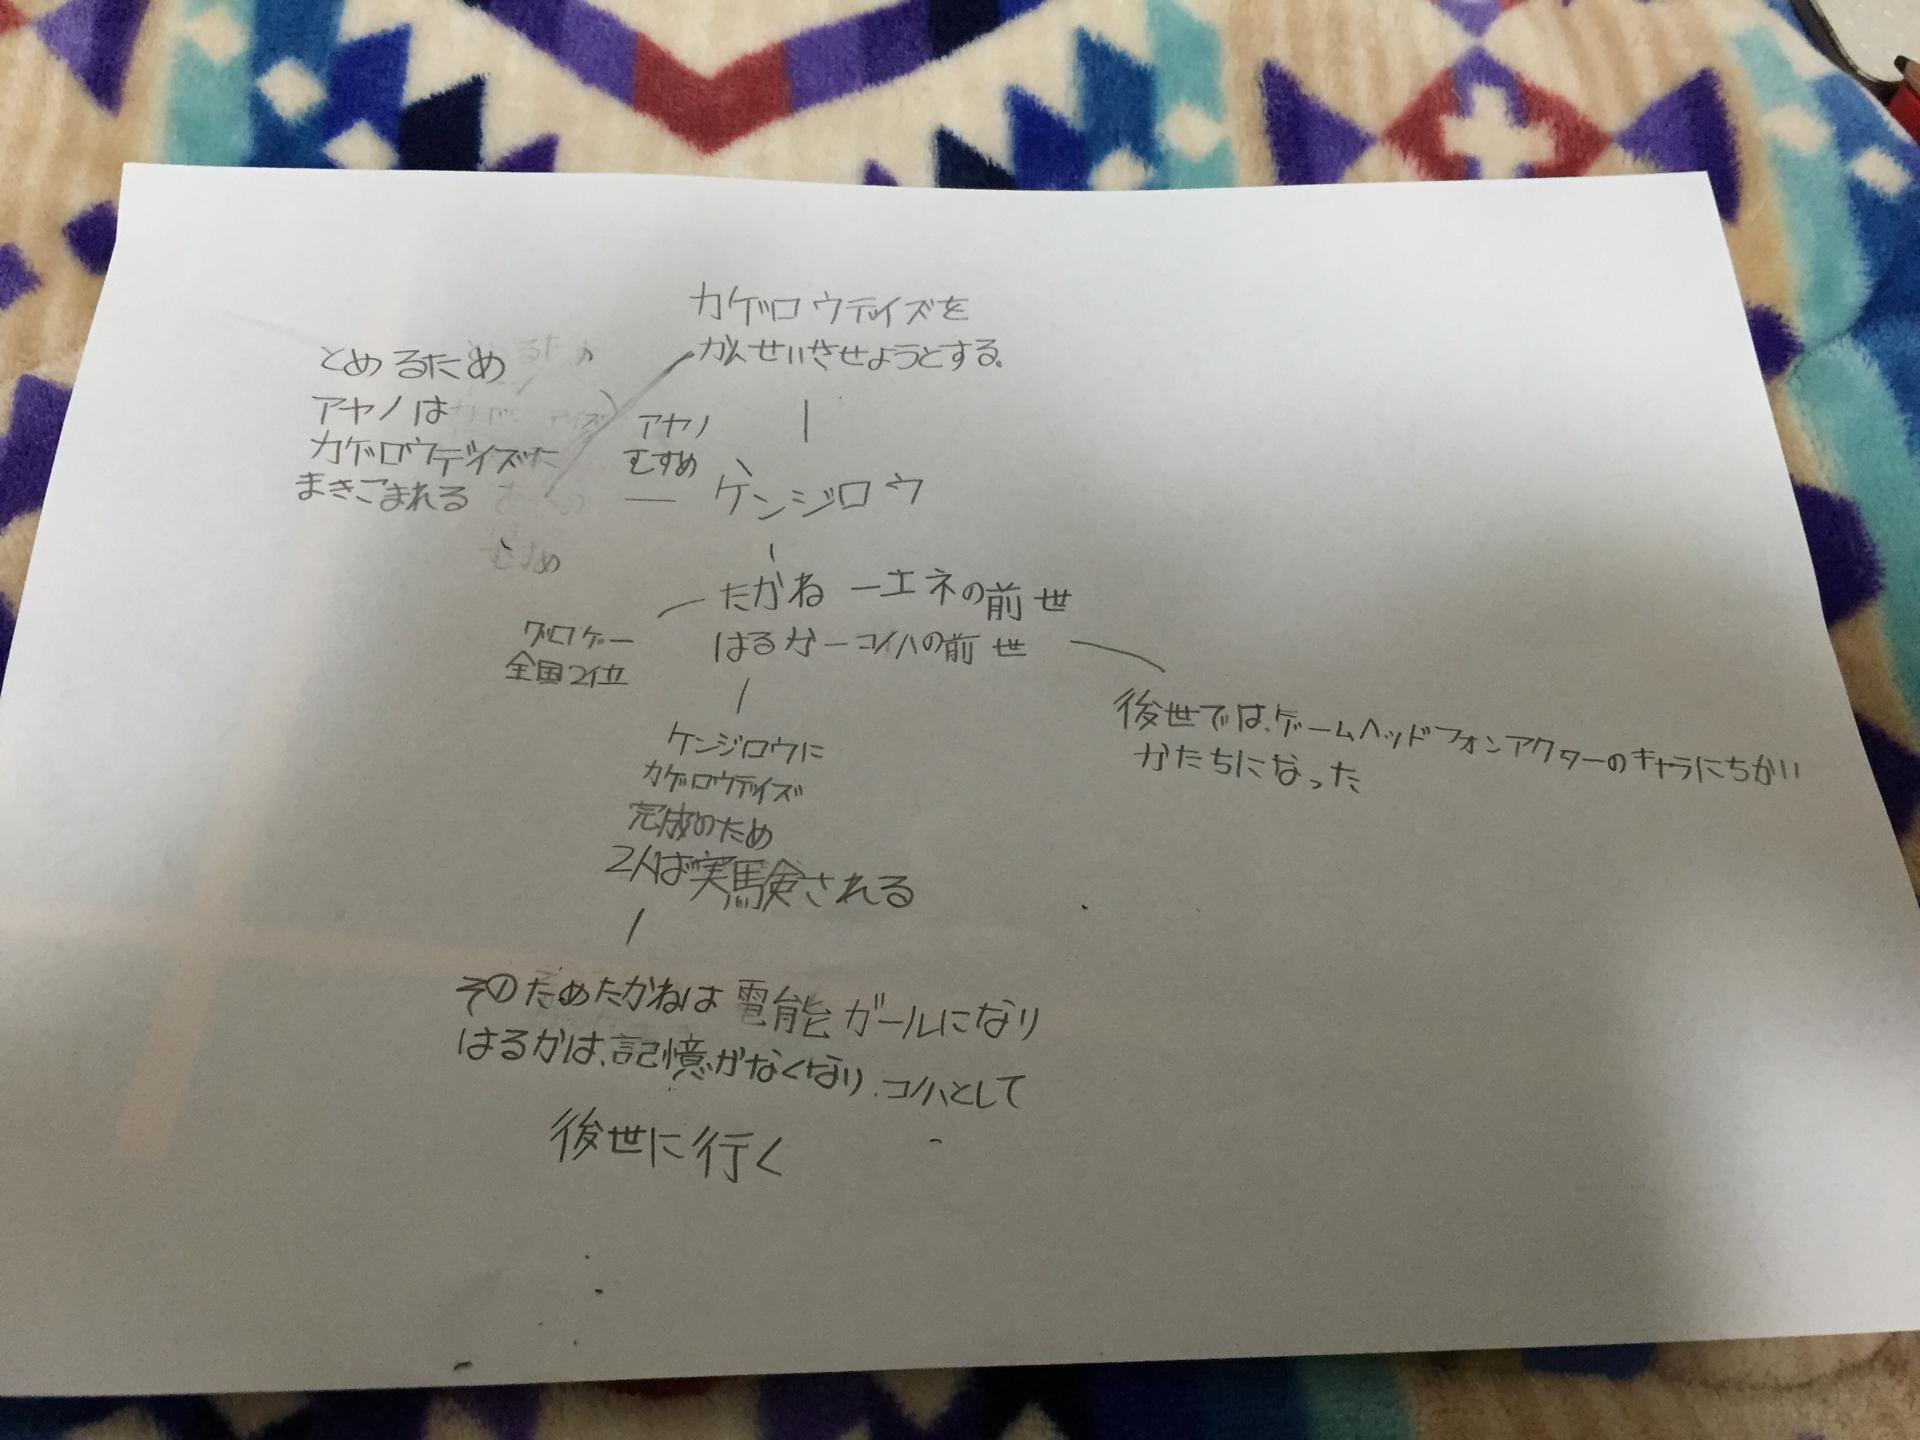 カゲロウデイズを
かんせいさせようとする。
とめるため
アヤノは
カゲロウデイズに
まきこまれる
アヤノ
むすめ
ケンジロウ
むすめ
たかね ーエネの前世
はるかーコノハの前世
グロゲー
全国2位
後世では、ゲームヘッドフォンアクターのキャラにちかい
かたちになった
ケンジロウに
カゲロウデイズ
完成のため
2人は実験される
そのためたかねは電能ガールになり
はるかは、記憶がなくなり、コノハとして
後世に行く